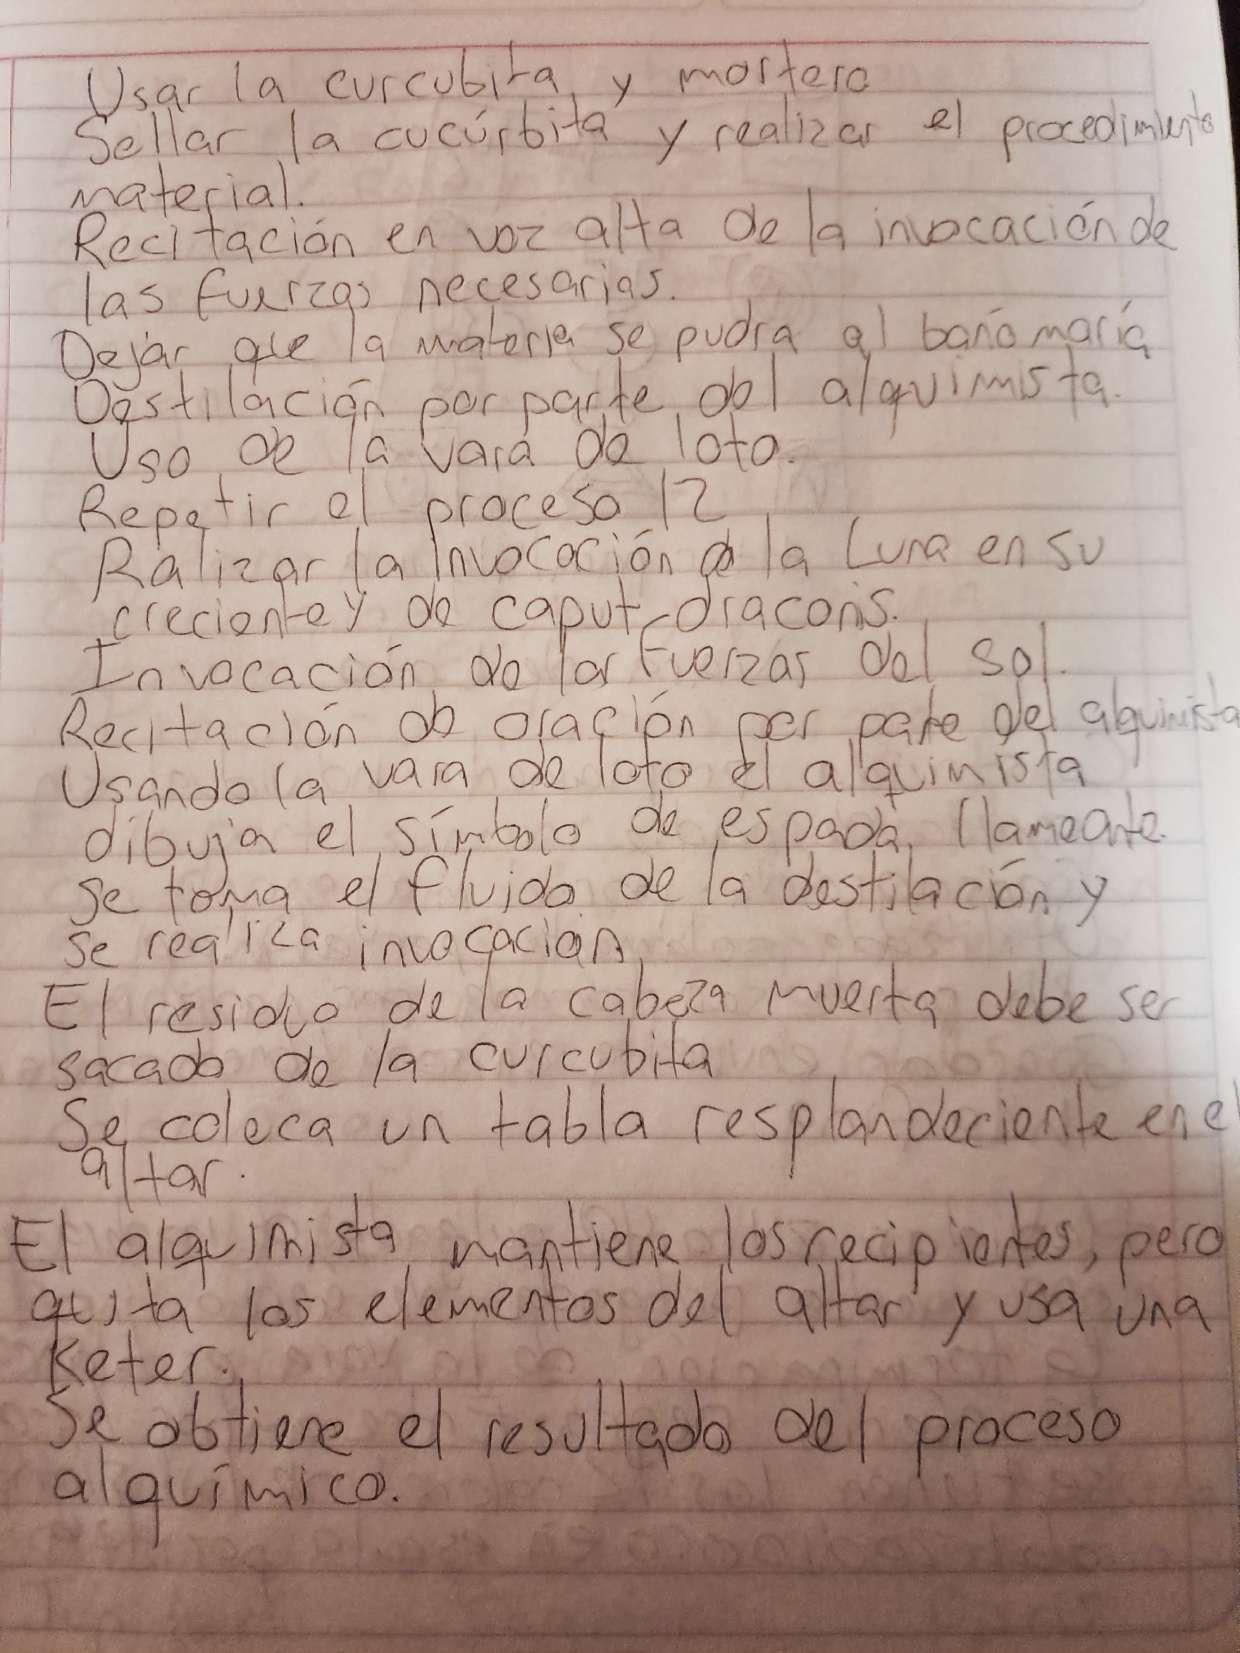 Usar la curcubita y mortero
Sellar la cucúrbita y realizar el procedimiento
material.
Recitación en voz alta de la invocación de
las fuerzas necesarias.
Dejar que la materia se pudra al baño maría
Destilación por parte del alquimista.
Uso de la vara de loto.
Repetir el proceso 12
Ralizar la invocación a la Luna en su
creciente y de caput dracons.
Invocación de las fuerzas del sol.
Recitación de oración por parte del alquimista
Usando la vara de loto el alquimista
dibuja el símbolo de espada llameante.
Se toma el fluido de la destilación y
se realiza invocación
El residuo de la cabeza muerta debe ser
sacado de la curcubita
Se coloca un tabla resplandeciente en el
altar.
El alquimista mantiene los recipientes, pero
quita los elementos del altar y usa una
Keter.
Se obtiene el resultado del proceso
alquímico.